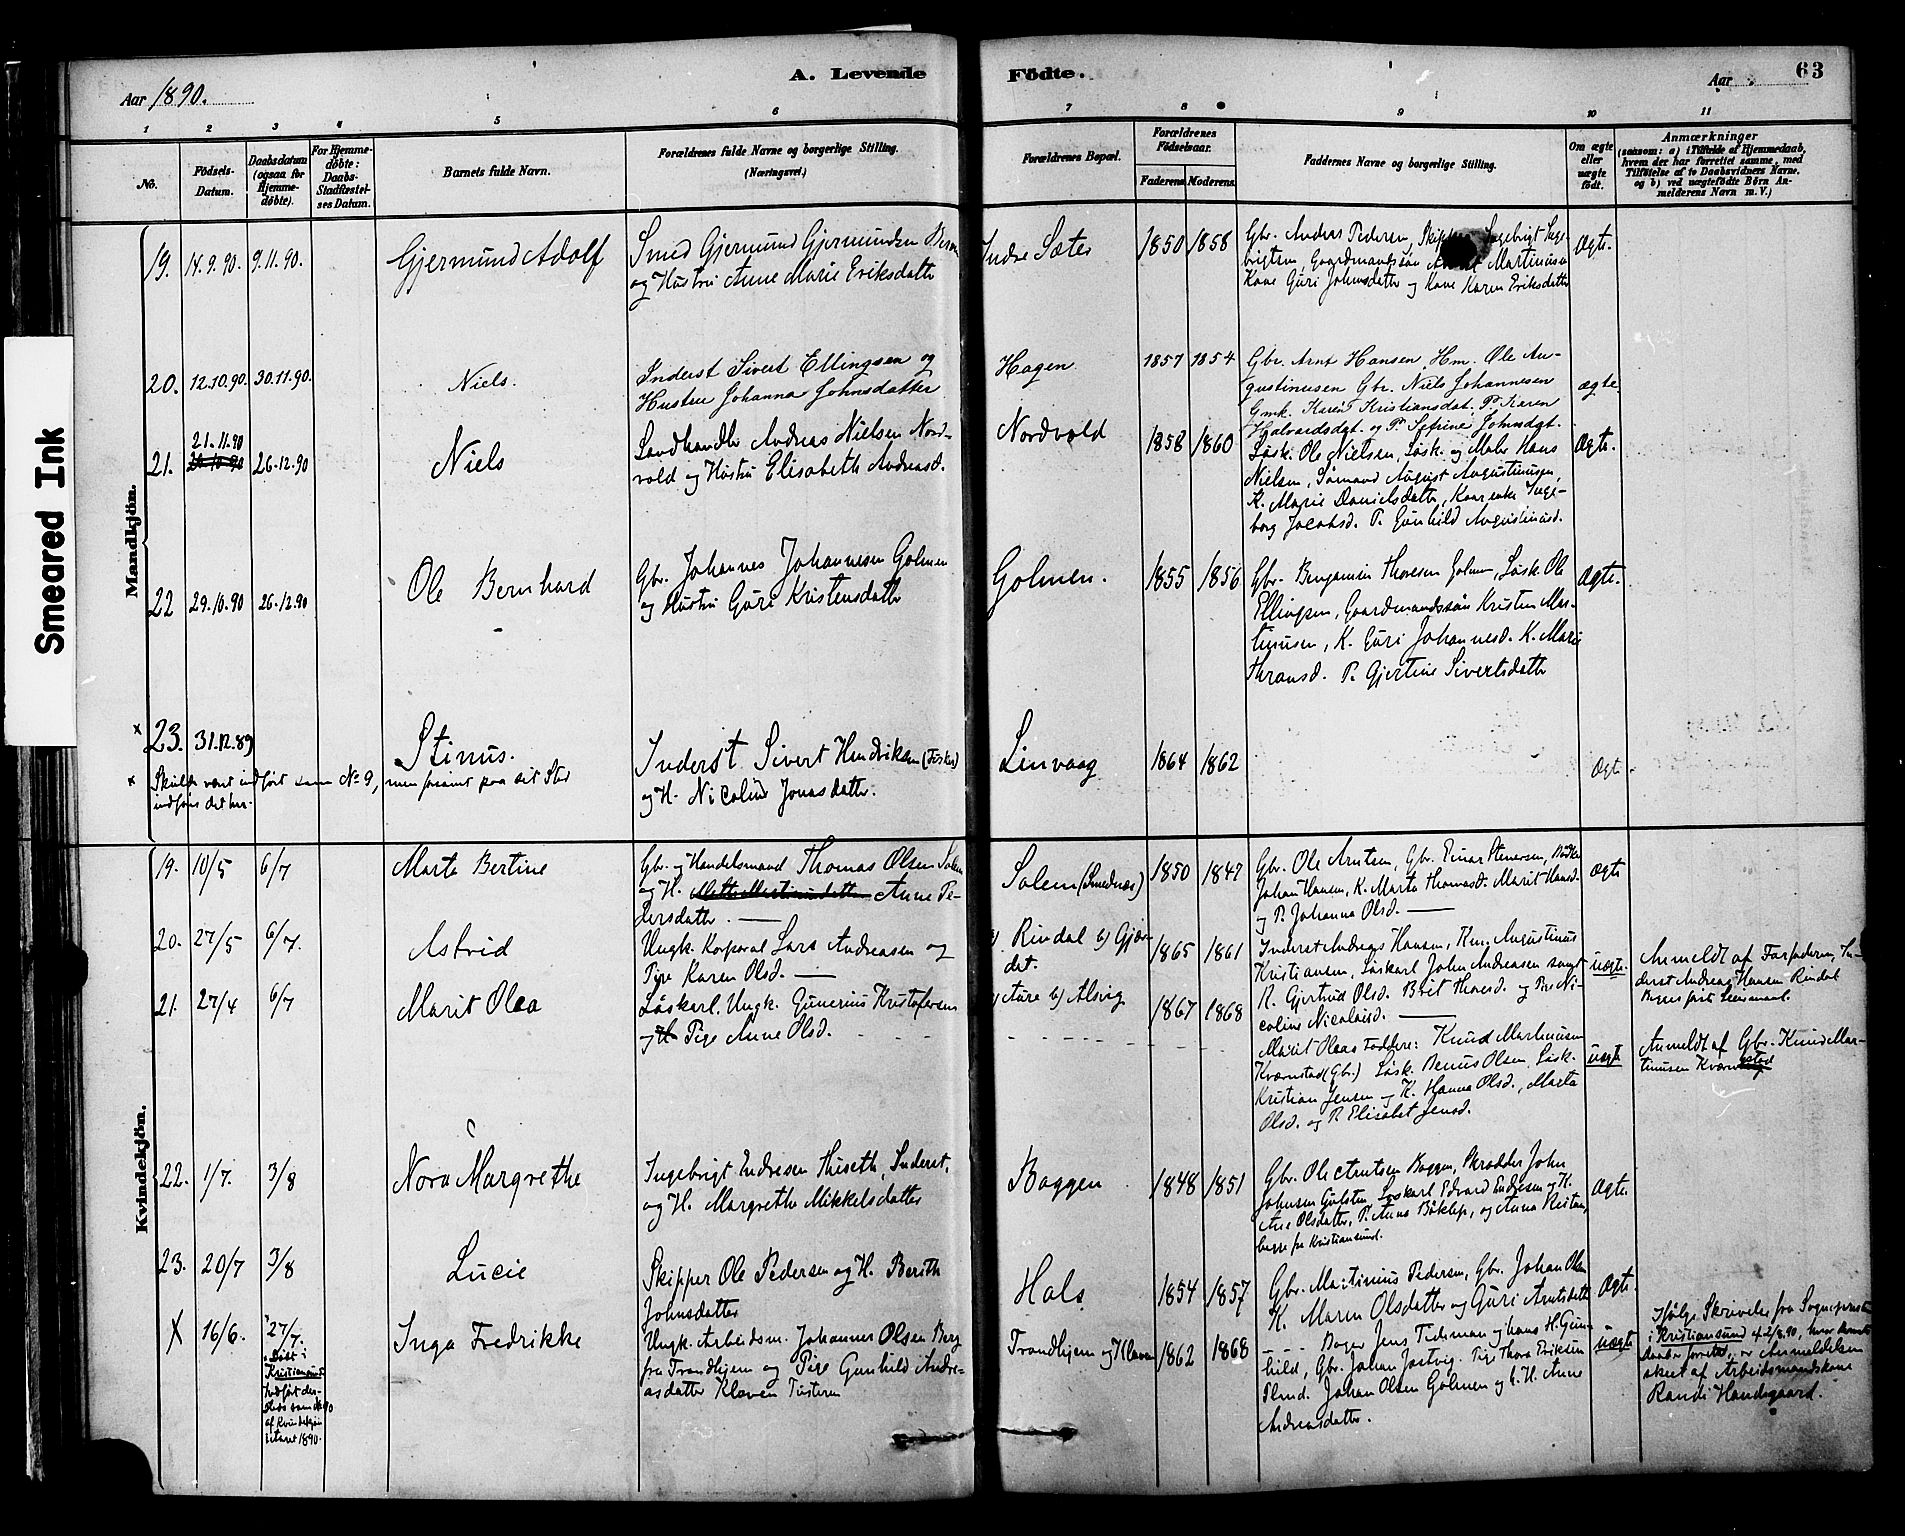 Smeared Ink
Aar 1890.
A. Levende
Födte.
Aar
63
1 2 3 4 5 6 7 8 9 10 11
No.
Födsels-
Datum.
Daabsdatum
(ogsaa for
Hjemme-
döbte).
For Hjemme-
döbte:
Daabs-
Stadfæstel-
ses Datum.
Barnets fulde Navn.
Forældrenes fulde Navne og borgerlige Stilling.
(Næringsvei.)
Forældrenes Bopæl.
Forældrenes
Födselsaar.
Faderens Moderens
Faddernes Navne og borgerlige Stilling.
Om ægte
eller
uægte
födt.
Anmærkninger
(saasom: a) i Tilfælde af Hjemmedaab,
hvem der har forrettet samme, med
Tilföielse af to Daabsvidners Navne,
og b) ved uægtefödte Börn An-
melderens Navn m. V.)
Mandkjön.
19. 14.9.90. 9.11.90.
Gjermund Adolf
Smed Gjermund Gjermundsen
og Hustru Anne Marie Eriksdatter
Indre Sæter
1850 1858
Gbr. Anders Pedersen, Skipper Ingebrigt Inge-
brigtsen, Gaardmandssön Martinusen
Kone Guri Johnsdatter og Kone Karen Eriksdatter
Ægte.
20. 12.10.90. 30.11.90.
Niels.
Inderst Sivert Ellingsen og
Hustru Johanna Johnsdatter
Hagen
1857 1854
Gbr. Arnt Hansen, Hm. Ole Au-
gustinusen Gbr. Niels Johannesen
Gmk. Karen Kristiansdat. P. Karen
Halvardsdat. og P. Sefrine Johnsdat.
ægte
21. 21.11.90 26.12.90
Niels
Landhandler Andreas Nielsen Nord-
vold og Hustru Elisabeth Andreasd.
Nordvold
1858 1860
Löск. Ole Nielsen, Lösk. og Maler Hans
Nielsen, Sömand August Augustinusen,
K. Marie Danielsdatter, Kaarenke Inge-
borg Jacobsd. P. Gunhild Augustinusd.
Ægte.
22 29.10.90 26.12.90
Ole Bernhard
Gbr. Johannes Johannesen Golmen
og Hustru Guri Kristensdatter
Golmen.
1855 1856
Gbr. Benjamin Thoresen Golmen, Lösk. Ole
Ellingsen, Gaardmandssön Kristen Mar-
tinusen, K. Guri Johannesd. K. Marie
P. Gjertine Sivertsdatter
Ægte.
x 23. 31.12.89
Stinus.
Inderst Sivert Hendriksen (Fisker)
og H. Nicoline Jonasdatter.
Linvaag
1864 1862
Ægte
x Skulde vært indfört som No 9, men forsömt paa sit Sted
indföres det her.
Kvindekjön.
19. 10/5 6/7
Marta Bertine
Gbr. og Handelsmand Thomas Olsen Solem
og H. Anne Pe-
dersdatter.
Solem (Smednæs)
1850 1847
Gbr. Ole Arntsen, Gbr. Einar Stenersen,
Johan Hansen, K. Marta Thomasd. Marit Hansd.
og P. Johanna Olsd.
Ægte
20. 27/5 6/7.
Astrid
Ungk. Korporal Lars Andreasen og
Pige Karen Olsd.
a) Rindal b) Gjær-
det.
1865 1861
Inderst Andreas Hansen, Hm. Augustinus
Kristiansen, Löskarl John Andreasen samt
K. Gjertrud Olsd. Brit Thoresd. og Pige Ni-
coline Nicolaisd.
uægte.
Anmeldt af Farfaderen, In-
derst Andreas Hansen Rindal
21. 27/4 6/7
Marit Olea
Löskarl, Ungk. Gunerius Kristofersen
og Pige Anne Olsd.
a) Aure b) Alvig
1867 1868
Marit Oleas Faddere: Knud Martinusen
Kværnstad (Gbr.) Lösk. Benus Olsen, Lösk.
Kristian Jensen og K. Hanna Olsd., Marta
Olsd. og P. Elisabet Jensd.
uægte
Anmeldt af Gbr. Knud Mar-
tinusen Kværnstad
22. 1/7. 3/8
Nora Margrethe
Ingebrigt Endresen Huseth, Inderst,
og H. Margrethe Mikkelsdatter
Baggen
1848 1851
Gbr. Ole Arntsen Baggen, Skrædder John
Johnsen Gulsten, Löskarl Edvard Endresen og K.
Ane Olsdatter, P. Anna og Anna
begge fra Kristiansund.
Ægte.
23. 20/7 3/8
Lucie
Skipper Ole Pedersen og H. Berith
Johnsdatter
Hals
1854 1857
Gbr. Martinus Pedersen, Gbr. Johan Olsen
K. Maren Olsdatter og Guri Arntsdatter
Ægte.
X 16/6. 27/7.
Döbt i
Kristiansund
Indfört der-
steds som No 90
af Kvindekjön
i Aaret 1890.
Inga Fredrikke
Ungk. Arbeidsm. Johannes Olsen Berg
fra Trondhjem og Pige Gunhild Andre-
asdatter Klaven Tusteren
Trondhjem og Klaven
1862 1868
Bager Jens Tidsman og hans H. Gun-
hild, Gbr. Johan Jostvig. Pige Thora Eriksen
Johan Olsen Golmen og h. H. Anne
Andreasdatter.
uægte
Ifölge Skrivelse fra Sognepræsten
i Kristiansund af 2/8.90, hvor
Daaben forrettet, er Anmeldelsen
skeet af Arbeidsmandskone
Randi Handegaard.